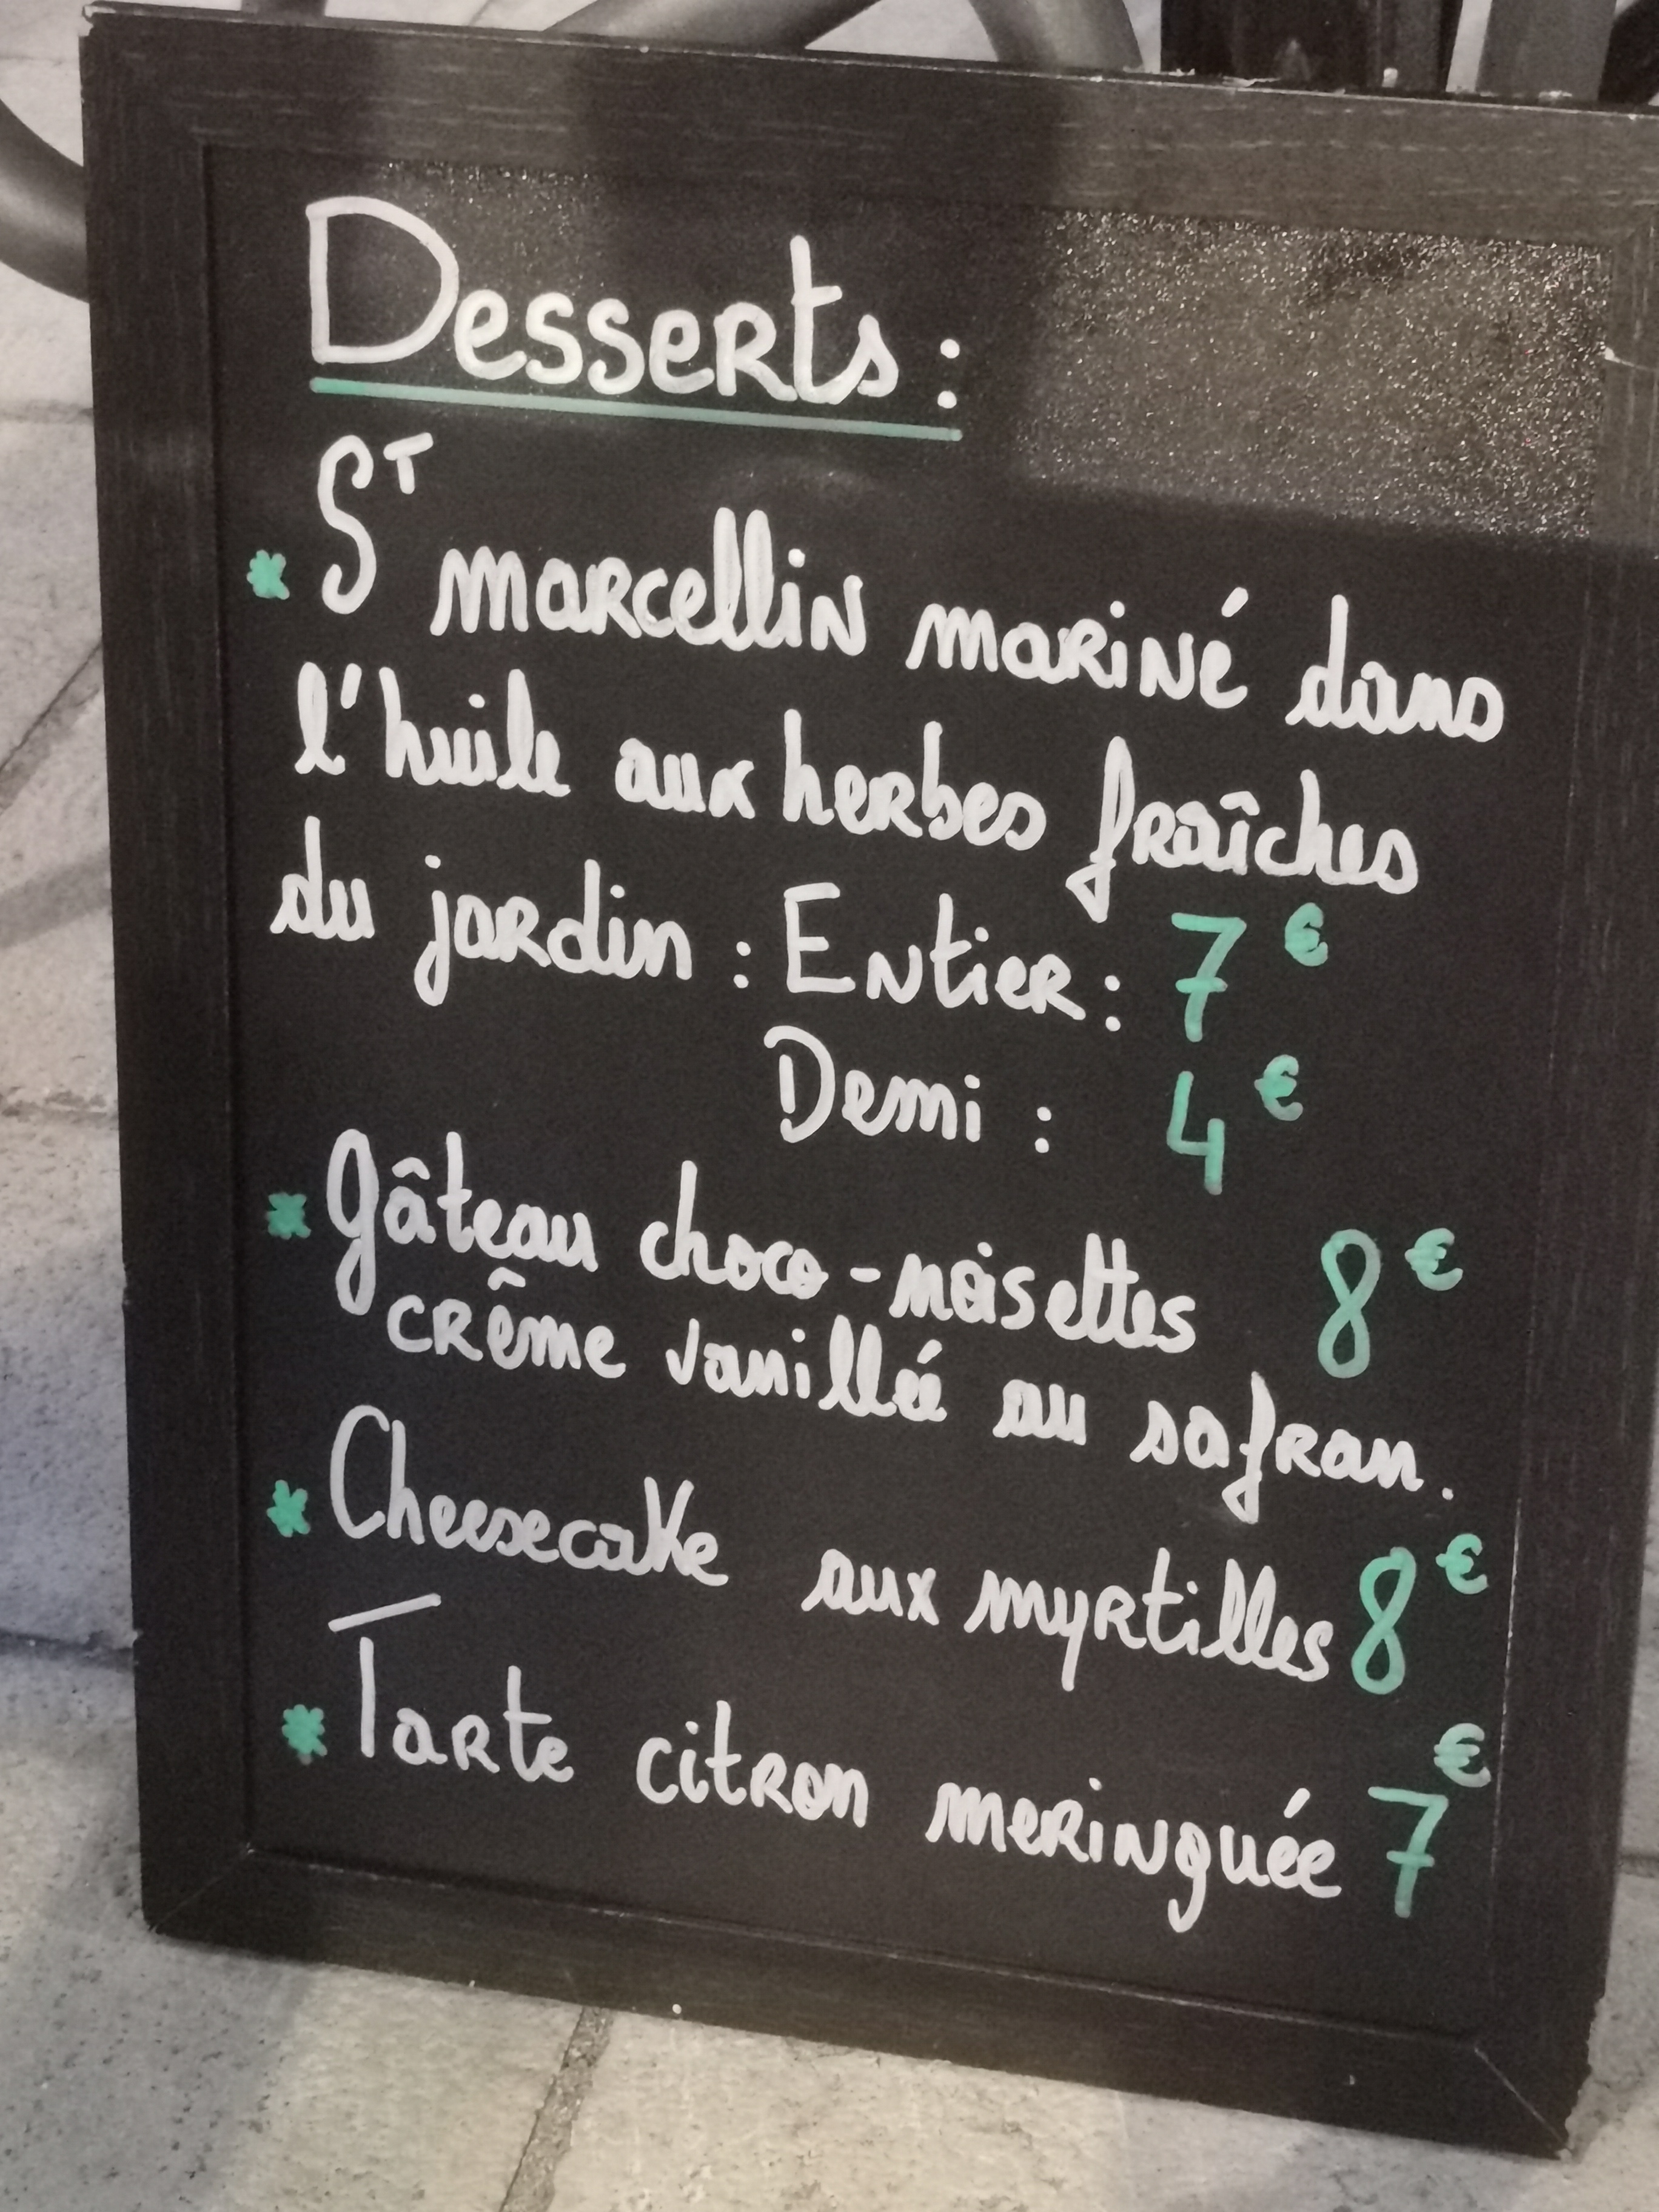 Desserts :
* St marcellin mariné dans
l'huile aux herbes fraîches
du jardin : Entier : 7€
Demi : 4€
* Gâteau choco-noisettes 8€
crême vanillée au safran.
* Cheesecake aux myrtilles 8€
* Tarte citron meringuée 7€